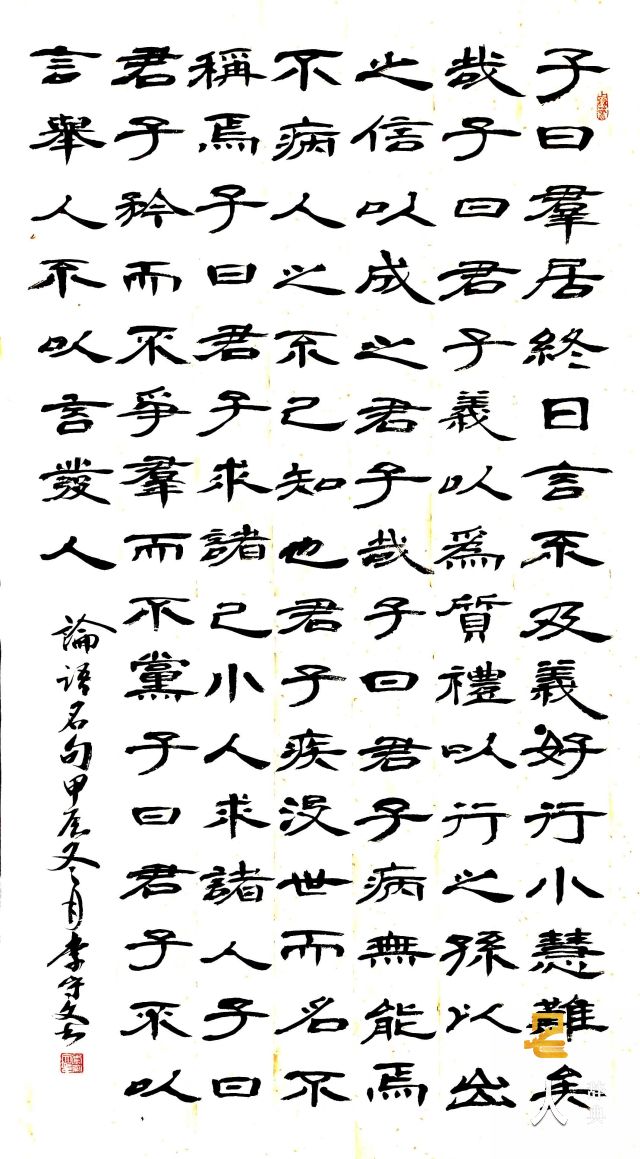 子曰羣居終日言不及義好行小慧難矣
哉子曰君子義以爲質禮以行之孫以出
之信以成之君子哉子曰君子病無能焉
不病人之不己知也君子疾没世而名不
稱焉子曰君子求諸己小人求諸人子曰
君子矜而不爭羣而不黨子曰君子不以
言舉人不以言發人
論語名句甲辰冬月李守文书
名人辞典